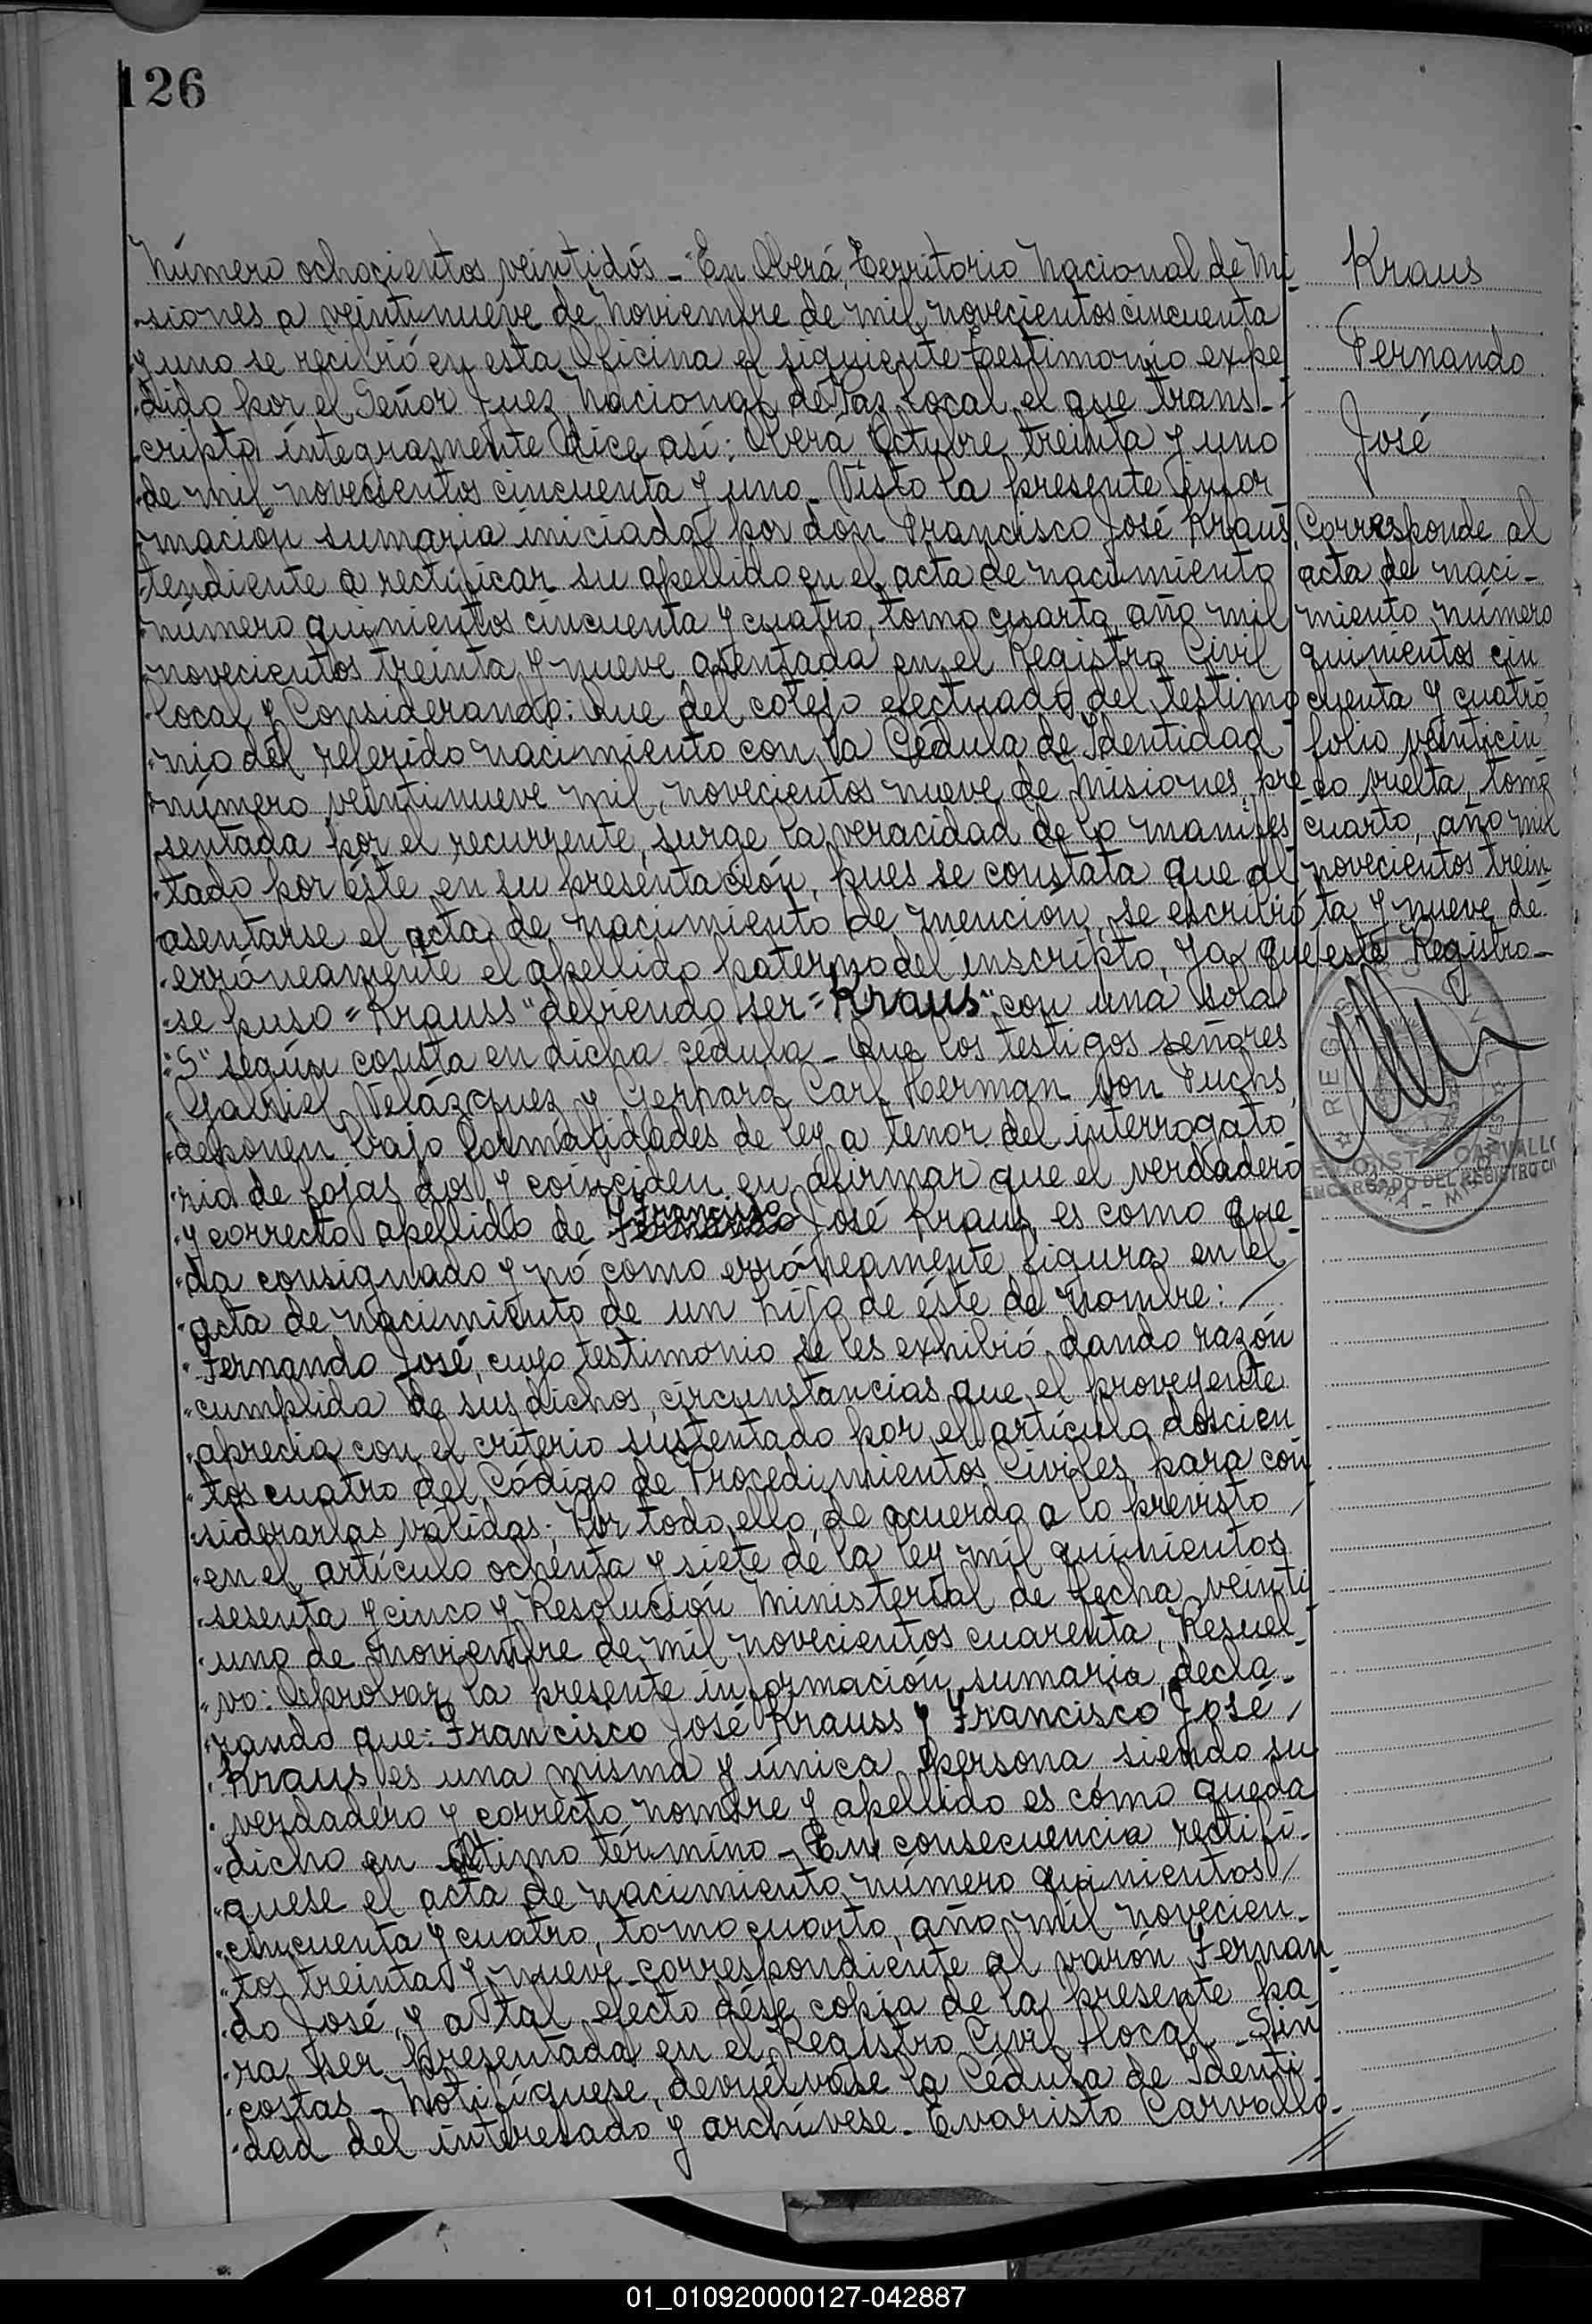 126
Número ochocientos veintidós - En Oberá, Territorio Nacional de Mi-
siones a veintinueve de Noviembre de mil novecientos cincuenta
y uno se recibió en esta Oficina el siguiente testimonio expe
dido por el Señor Juez Nacional de Paz local el que trans-
cripto íntegramente dice así: Oberá Octubre treinta y uno
de mil novecientos cincuenta y uno. Visto la presente infor
mación sumaria iniciada por don Francisco José Kraus,
tendiente a rectificar su apellido en el acta de nacimiento
número quinientos cincuenta y cuatro, tomo cuarto, año mil
novecientos treinta y nueve asentada en el Registro Civil
local y Considerando: Que del cotejo efectuado del testimo
nio del referido nacimiento con la Cédula de Identidad
número veintinueve mil, novecientos nueve de Misiones, pre
sentada por el recurrente, surge la veracidad de lo manifes
tado por éste en su presentación, pues se constata que al
asentarse el acta de nacimiento de mención, se escribió
erróneamente el apellido paterno del inscripto, ya que
se puso "Krauss" debiendo ser "Kraus" con una sola
"S" según consta en dicha cédula - Que los testigos señores
Gabriel Velázquez y Gerhard Carl Herman von Fuchs,
deponen bajo formalidades de ley a tenor del interrogato
rio de fojas dos y coinciden en afirmar que el verdadero
y correcto apellido de Francisco José Kraus, es como que-
da consignado y nó como erróneamente figura en el
acta de nacimiento de un hijo de éste de nombre: /
Fernando José, cuyo testimonio se les exhibió, dando razón
cumplida de sus dichos, circunstancias que el proveyente
aprecia con el criterio sustentado por el artículo doscien
tos cuatro del Código de Procedimientos Civiles para con
siderarlas válidas; Por todo ello, de acuerdo a lo previsto /
en el artículo ochenta y siete de la ley mil quinientos
sesenta y cinco y Resolución Ministerial de fecha veinti
uno de noviembre de mil novecientos cuarenta, Resuel-
vo: Aprobar la presente información sumaria, decla-
rando que: Francisco José Krauss y Francisco José /
Kraus, es una misma y única persona siendo su
verdadero y correcto nombre y apellido es cómo queda
dicho en último término - En consecuencia rectifí-
quese el acta de nacimiento número quinientos /
cincuenta y cuatro, tomo cuarto, año mil novecien-
tos treinta y nueve - correspondiente al varón Fernan-
do José, y a tal efecto dése copia de la presente pa
ra ser presentada en el Registro Civil local - Sin
costas - Notifíquese, devuélvase la Cédula de Identi
dad del interesado y archívese - Evaristo Carvallo -
Kraus
Fernando
José
Corresponde al
acta de naci-
miento número
quinientos cin
cuenta y cuatro,
folio veinticin
co vuelta, tomo
cuarto, año mil
novecientos trein
ta y nueve de
este Registro -
CARVALLO
ENCARGADO DEL REGISTRO CIVIL
01_010920000127-042887